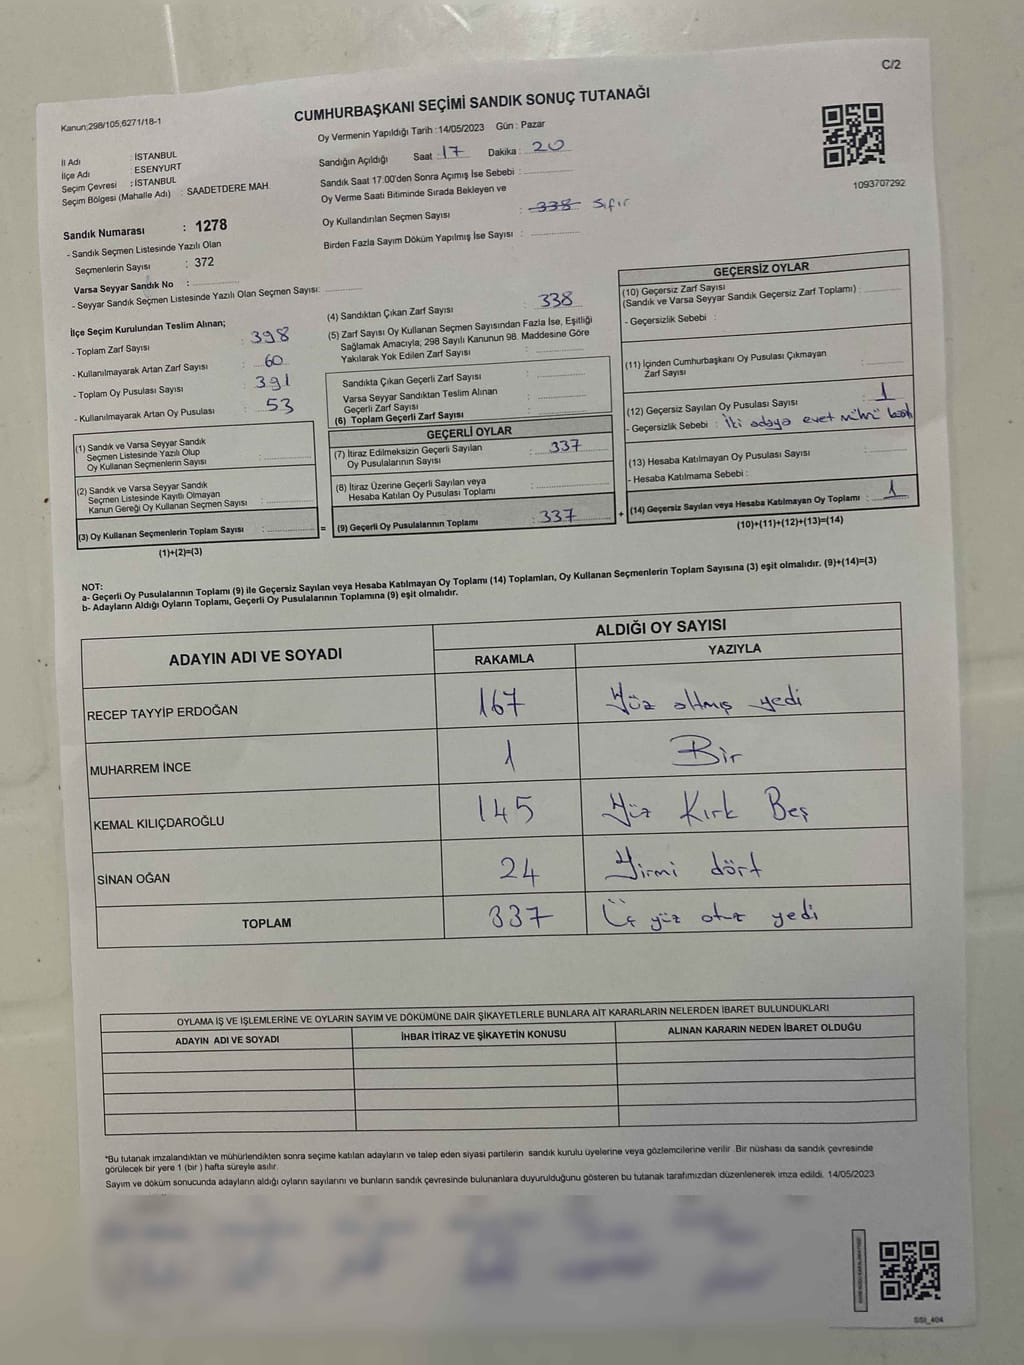 C/2
Kanun;298/105,6271/18-1
CUMHURBAŞKANI SEÇİMİ SANDIK SONUÇ TUTANAĞI
Oy Vermenin Yapıldığı Tarih :14/05/2023 Gün : Pazar
İl Adı : İSTANBUL
İlçe Adı : ESENYURT
Seçim Çevresi : İSTANBUL
Seçim Bölgesi (Mahalle Adı) : SAADETDERE MAH.
Sandığın Açıldığı Saat : 17 Dakika : 20
Sandık Saat 17:00'den Sonra Açımış İse Sebebi :
Oy Verme Saati Bitiminde Sırada Bekleyen ve
Oy Kullandırılan Seçmen Sayısı : 338 Sıfır
Birden Fazla Sayım Döküm Yapılmış İse Sayısı :
1093707292
Sandık Numarası : 1278
- Sandık Seçmen Listesinde Yazılı Olan
Seçmenlerin Sayısı : 372
Varsa Seyyar Sandık No :
- Seyyar Sandık Seçmen Listesinde Yazılı Olan Seçmen Sayısı:
İlçe Seçim Kurulundan Teslim Alınan;
- Toplam Zarf Sayısı : 398
- Kullanılmayarak Artan Zarf Sayısı : 60
- Toplam Oy Pusulası Sayısı : 391
- Kullanılmayarak Artan Oy Pusulası : 53
(1) Sandık ve Varsa Seyyar Sandık
Seçmen Listesinde Yazılı Olup
Oy Kullanan Seçmenlerin Sayısı :
(2) Sandık ve Varsa Seyyar Sandık
Seçmen Listesinde Kayıtlı Olmayan
Kanun Gereği Oy Kullanan Seçmen Sayısı :
(3) Oy Kullanan Seçmenlerin Toplam Sayısı : =
(1)+(2)=(3)
(4) Sandıktan Çıkan Zarf Sayısı : 338
(5) Zarf Sayısı Oy Kullanan Seçmen Sayısından Fazla İse, Eşitliği
Sağlamak Amacıyla; 298 Sayılı Kanunun 98. Maddesine Göre
Yakılarak Yok Edilen Zarf Sayısı :
Sandıkta Çıkan Geçerli Zarf Sayısı :
Varsa Seyyar Sandıktan Teslim Alınan
Geçerli Zarf Sayısı :
(6) Toplam Geçerli Zarf Sayısı :
GEÇERLİ OYLAR
(7) İtiraz Edilmeksizin Geçerli Sayılan
Oy Pusulalarının Sayısı : 337
(8) İtiraz Üzerine Geçerli Sayılan veya
Hesaba Katılan Oy Pusulası Toplamı :
(9) Geçerli Oy Pusulalarının Toplamı : 337 +
GEÇERSİZ OYLAR
(10) Geçersiz Zarf Sayısı
(Sandık ve Varsa Seyyar Sandık Geçersiz Zarf Toplamı) :
- Geçersizlik Sebebi :
(11) İçinden Cumhurbaşkanı Oy Pusulası Çıkmayan
Zarf Sayısı :
(12) Geçersiz Sayılan Oy Pusulası Sayısı : 1
- Geçersizlik Sebebi : İki adaya evet mührü
(13) Hesaba Katılmayan Oy Pusulası Sayısı :
- Hesaba Katılmama Sebebi :
(14) Geçersiz Sayılan veya Hesaba Katılmayan Oy Toplamı : 1
(10)+(11)+(12)+(13)=(14)
NOT:
a- Geçerli Oy Pusulalarının Toplamı (9) ile Geçersiz Sayılan veya Hesaba Katılmayan Oy Toplamı (14) Toplamları, Oy Kullanan Seçmenlerin Toplam Sayısına (3) eşit olmalıdır. (9)+(14)=(3)
b- Adayların Aldığı Oyların Toplamı, Geçerli Oy Pusulalarının Toplamına (9) eşit olmalıdır.
ADAYIN ADI VE SOYADI ALDIĞI OY SAYISI
RAKAMLA YAZIYLA
RECEP TAYYİP ERDOĞAN 167 Yüz altmış yedi
MUHARREM İNCE 1 Bir
KEMAL KILIÇDAROĞLU 145 Yüz Kırk Beş
SİNAN OĞAN 24 Yirmi dört
TOPLAM 337 Üç yüz otuz yedi
OYLAMA İŞ VE İŞLEMLERİNE VE OYLARIN SAYIM VE DÖKÜMÜNE DAİR ŞİKAYETLERLE BUNLARA AİT KARARLARIN NELERDEN İBARET BULUNDUKLARI
ADAYIN ADI VE SOYADI İHBAR İTİRAZ VE ŞİKAYETİN KONUSU ALINAN KARARIN NEDEN İBARET OLDUĞU
*Bu tutanak imzalandıktan ve mühürlendikten sonra seçime katılan adayların ve talep eden siyasi partilerin sandık kurulu üyelerine veya gözlemcilerine verilir .Bir nüshası da sandık çevresinde
görülecek bir yere 1 (bir ) hafta süreyle asılır.
Sayım ve döküm sonucunda adayların aldığı oyların sayılarını ve bunların sandık çevresinde bulunanlara duyurulduğunu gösteren bu tutanak tarafımızdan düzenlenerek imza edildi. 14/05/2023
SSI_404